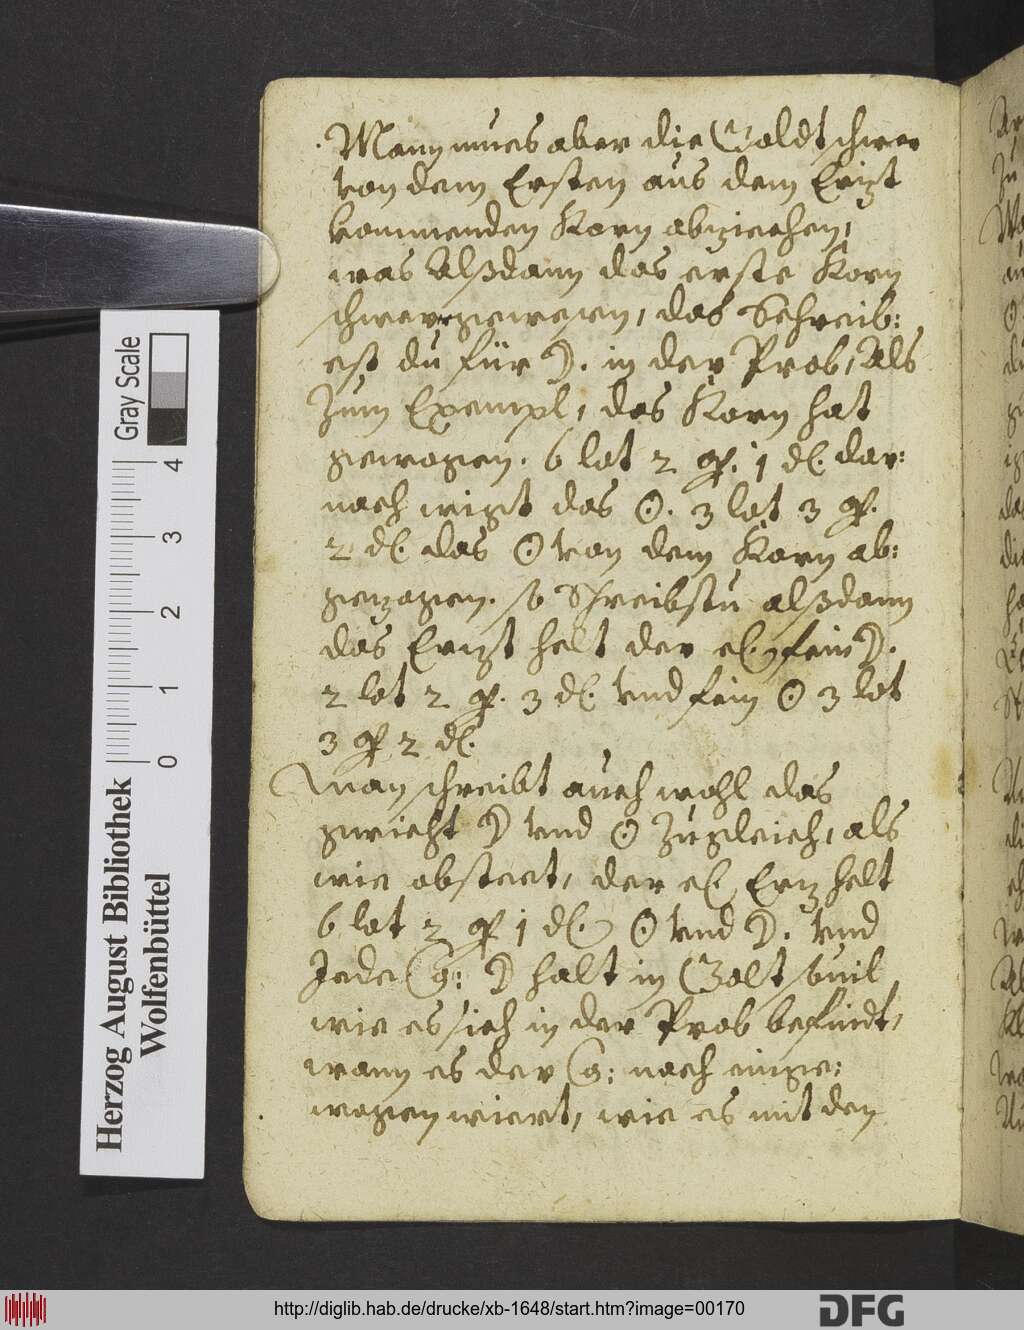 Mann mues aber die Goldt schwer
von dem Ersten aus dem Erizt
kommenden Korn abziechen,
was Alßdann das erste Korn
schwer gewesen, das Schreib:
est du für ☽. in der Prob, Als
Zum Exempl, das Korn hat
gewogen. 6 lot 2 q. 1 dl. dar:
nach wigt das ☉. 3 lot 3 q.
2 dl. das ☉ von dem Korn ab:
gezogen. so Schreibstu alßdann
das Erizt helt der cl. fein ☽.
2 lot 2 q. 3 dl. vnd fein ☉ 3 lot
3 q 2 dl.
Man schreibt auch wohl das
gewicht ☽ vnd ☉ Zugleich, als
wie obsteet, der cl. Eriz helt
6 lot 2 q 1 dl. ☉ vnd ☽. vnd
Jede G: ☽ halt in Golt souil
wie es sich in der Prob befindt,
wann es der G: nach einge:
wogen wiert, wie es mit den
Gray Scale
0 1 2 3 4
Herzog August Bibliothek
Wolfenbüttel
http://diglib.hab.de/drucke/xb-1648/start.htm?image=00170
DFG